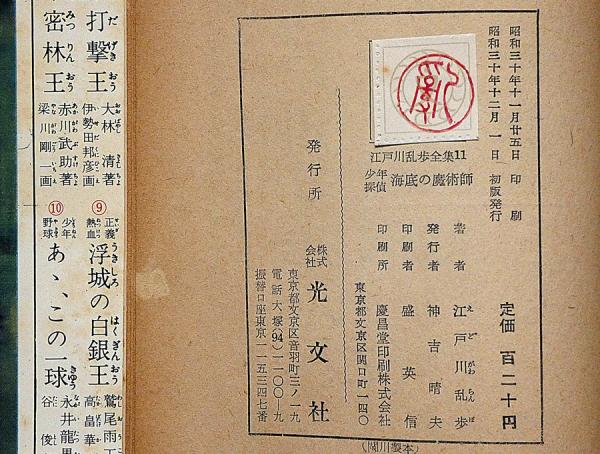 昭和三十年十一月廿五日 印刷
昭和三十年十二月 一日 初版発行
江戸川乱歩全集11
少年探偵 海底の魔術師
定価 百二十円
著者 江戸川乱歩
えどがわらんぽ
発行者 神吉晴夫
印刷者 盛英信
印刷所 慶昌堂印刷株式会社
東京都文京区関口町一四〇
発行所 株式会社 光文社
東京都文京区音羽町三ノ一九
電話大塚(94)一一〇〇―九
振替口座東京一一五三四七番
(関川製本)
打撃王 大林清著 伊勢田邦彦画
だげきおう
密林王 赤川武助著 梁川剛一画
みつりんおう
⑨ 正義熱血 浮城の白銀王 鷲尾雨工 高畠華
うきしろ はくぎんおう
⑩ 少年野球 あゝ、この一球 永井龍男 谷俊
きゅう